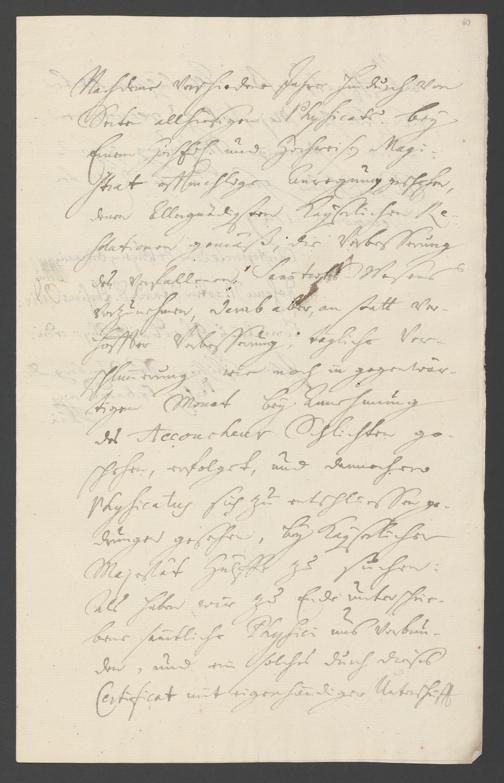 60
Nachdeme verschiedene Jahre hindurch von
Seiten allhiesigen Physicats bey
Einem hochEdl. und Hochweisen Magi-
strat offtmahlige Anregung geschehen,
denen Allergnädigsten Kayserlichen Re-
solutionen gemäß, die Verbesserung
des verfallenen Sanitäts Wesens
vorzunehmen, darob aber, an statt ver-
hoffter Verbesserung, tägliche Ver-
schlimmerung wie noch in gegenwär-
tigen Monat bey Annehmung
des Accoucheur Schlichten ge-
schehen, erfolget, und dannenhero
Physicatus sich zu entschliessen ge-
drungen gesehen, bey Kayserlicher
Majestät Hülffe zu suchen:
Als haben wir zu Ende unterschrie-
bene sämtliche Physici uns verbun-
den, und ein solches durch dieses
Certificat mit eigenhändiger Unterschrifft